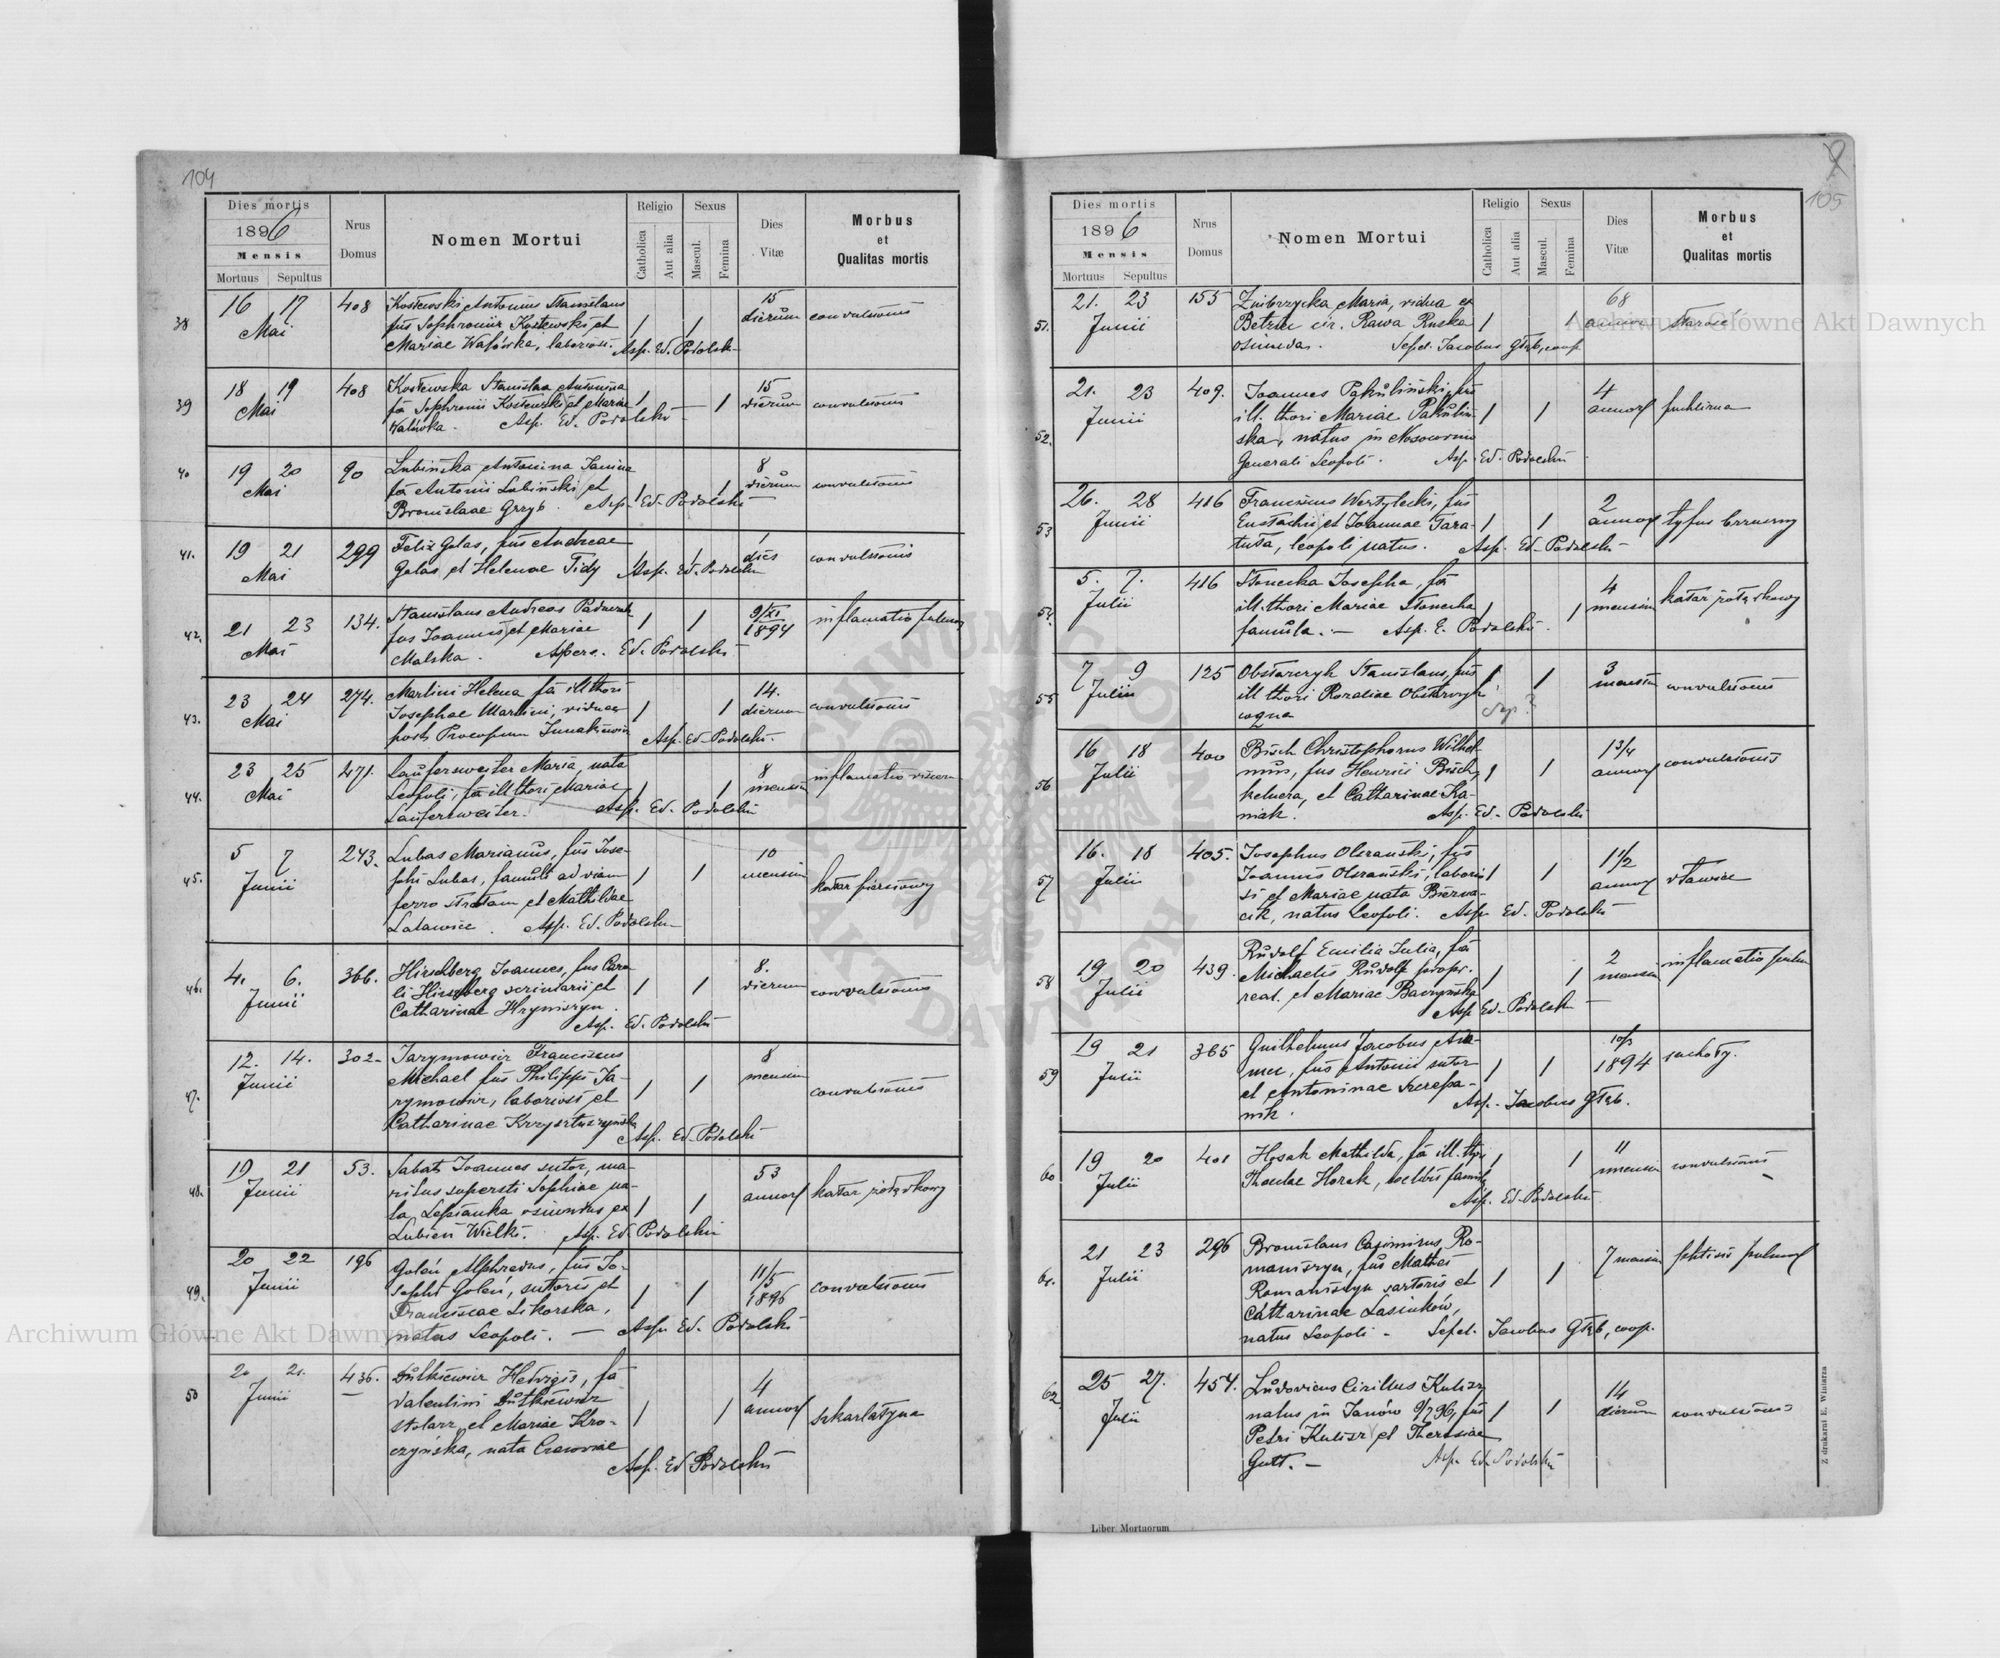 104
Dies mortis
1896
Mensis
Mortuus Sepultus
Nrus
Domus
Nomen Mortui
Religio
Catholica
Aut alia
Sexus
Mascul.
Femina
Dies
Vitæ
Morbus
et
Qualitas mortis
38
16 17
Mai
408
Kostewski Antonius Stanislaus
fus Sophronii Kostewski et
Mariae Watówka, laboriosi.
Asp. Ed. Podolski
15
dierum
convulsionis
39
18 19
Mai
408
Kostewska Stanislaa Antonina
fa Sophronii Kostewski et Mariae
Watówka. Asp. Ed. Podolski
15
dierum
convulsionis
40
19 20
Mai
90
Lubińska Antonina Janina
fa Antonii Lubiński et
Bronislaae Grzyb. Asp. Ed. Podolski
8
dierum
convulsionis
41.
19 21
Mai
299
Felix Golas, fus Andreae
Golas et Helenae Tidy Asp. Ed. Podolski
1
dies
convulsionis
42.
21 23
Mai
134.
Stanislaus Andreas
fus Joannis et Mariae
Malska. Aspers. Ed. Podolski
9/XI
1894
inflamatio pulmon
43.
23 24
Mai
274.
Martini Helena fa ill thori
Josephae Martini, viduae
post Procopium
Asp. Ed. Podolski.
14.
dierum
convulsionis
44.
23 25
Mai
471.
Laufersweiler Maria, nata
Leopoli, fa ill thori Mariae
Laufersweiler. Asp. Ed. Podolski
8
mensium
inflamatio
45.
5 7
Junii
243.
Lubas Marianus, fus Jose-
phi Lubas, famuli ad viam
ferro stratam et Mathildae
Latawiec. Asp. Ed. Podolski
10
mensium
katar piersiowy
46.
4. 6.
Junii
366.
Hirschberg Joannes, fus Caro-
li Hirschberg scriniarii et
Catharinae Hrymszyn.
Asp. Ed. Podolski
8.
dierum
convulsionis
47.
12. 14.
Junii
302.
Jarymowicz Franciscus
Michael fus Philippi Ja-
rymowicz, laboriosi et
Catharinae
Asp. Ed. Podolski
8
mensium
convulsionis
48.
19 21
Junii
53.
Sabat Joannes sutor, ma-
ritus supersti Sophiae na-
ta Lepianka oriundus ex
Lubień Wielki. Asp. Ed. Podolski
53
annor
katar żołądkowy
49.
20 22
Junii
196
Goleń Alphredus, fus Jo-
sephi Goleń, sutoris et
Franciscae Sikorska,
natus Leopoli. — Asp. Ed. Podolski
11/5
1896
convulsionis
50
20 21.
Junii
436.
Dutkiewicz Hedvigis, fa
Valentini Dutkiewicz
stolarz, et Mariae Kro-
czyńska, nata Cracoviae
Asp. Ed Podolski
4
annor
szkarlatyna
105
Dies mortis
1896
Mensis
Mortuus Sepultus
Nrus
Domus
Nomen Mortui
Religio
Catholica
Aut alia
Sexus
Mascul.
Femina
Dies
Vitæ
Morbus
et
Qualitas mortis
51.
21. 23
Junii
155
Maria, vidua ex
cir. Rawa Ruska
oriunda. Sepel. Jacobus Głąb, coop.
68
annor
starość
52.
21. 23
Junii
409.
Joannes Pakuliński, fus
ill. thori Mariae Pakuliń-
ska, natus in Nosocomio
Generali Leopoli. Asp. Ed. Podolski
4
annor
53
26. 28
Junii
416
Franciscus Wertylecki, fus
Eustachii et Joannae Tara-
tuta, Leopoli natus. Asp. Ed. Podolski
2
annor
tyfus brzuszny
54.
5. 7.
Julii
416
Stonecka Josepha, fa
ill. thori Mariae Stonecka
famula. — Asp. E. Podolski.
4
mensium
katar żołądkowy
55
7 9
Julii
125
Obstarczyk Stanislaus, fus
ill thori Rozaliae Obstarczyk
coqua
Asp?
3
mensium
convulsionis
56
16 18
Julii
400
Bisch Christophorus Wilhel-
mus, fus Henrici Bisch,
kelnera, et Catharinae Ka-
niak. Asp. Ed. Podolski
1 3/4
annor
convulsionis
57
16. 18
Julii
405.
Josephus Olszański, fus
Joannis Olszański, laborio-
si et Mariae nata Bierna-
cik, natus Leopoli. Asp. Ed. Podolski
1 1/2
annor
dławiec
58
19 20
Julii
439.
Rudolf Emilia Julia, fa
Michaelis Rudolf propr.
real. et Mariae Baczyńska
Asp Ed. Podolski
2
mensium
inflamatio pulm
59
19 21
Julii
365
Guilhelmus Jacobus Ada-
mec, fus Antonii sutor
et Antoninae Szczepa-
nik. Asp. Jacobus Głąb.
10/3
1894
suchoty.
60
19 20
Julii
401
Horak Mathilda, fa ill. thori
Theclae Horak, caelibis famulae
Asp. Ed. Podolski
11
mensium
convulsionis
61.
21 23
Julii
296
Bronislaus Casimirus Ro-
maniszyn, fus Mathei
Romaniszyn sartoris et
Catharinae Lasinków,
natus Leopoli. - Sepel. Jacobus Głąb, coop.
7 mensium
phtisis pulmon
62
25 27.
Julii
454.
Ludovicus Cirillus Kulisz
natus in Janów 9/7 96, fus
Petri Kulisz et Theresiae
Gutt. — Asp. Ed. Podolski
14
dierum
convulsionis
Liber Mortuorum
Z drukarni E. Winiarza
Archiwum Główne Akt Dawnych
Archiwum Główne Akt Dawnych
ARCHIWUM GŁÓWNE AKT DAWNYCH